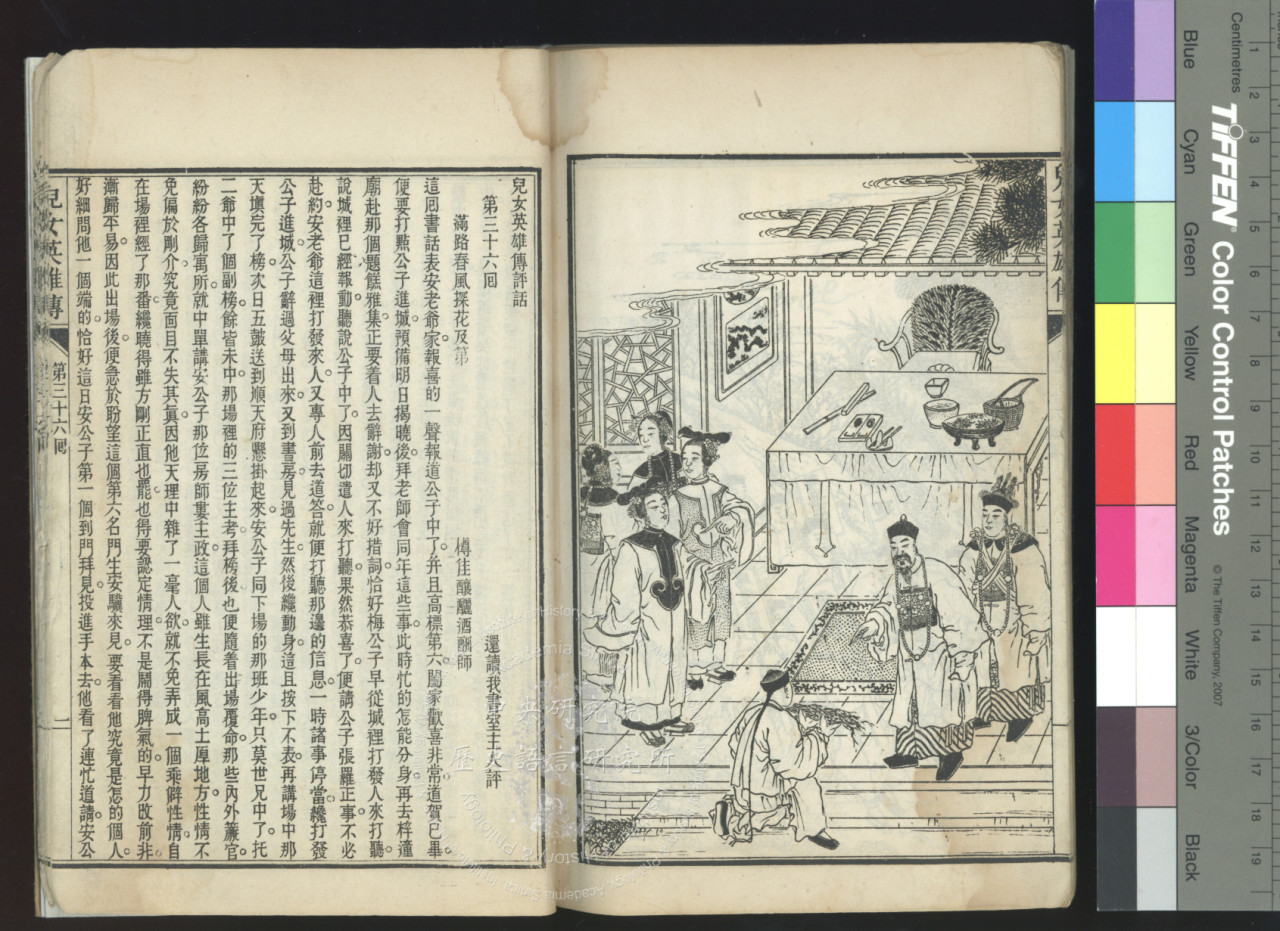 兒女英雄傳評話
第三十六囘
還讀我書室主人評
滿路春風探花及第
樽佳釀酾酒酬師
這囘書話表安老爺家報喜的一聲報道公子中了。幷且高標第六。闔家歡喜非常。道賀已畢。
便要打㸃公子進城。預備明日揭曉後拜老師會同年這些事。此時忙的怎能分身。再去梓潼
廟赴那個題餻雅集。正要着人去辭謝。却又不好措詞。恰好梅公子早從城裡打發人來打聽。
說城裡已經報動。聽說公子中了。因關切遣人來打聽。果然恭喜了。便請公子張羅正事。不必
赴約。安老爺這裡打發來人。又專人前去道答。就便打聽那邊的信息。一時諸事停當。纔打發
公子進城。公子辭過父母出來。又到書房見過先生。然後纔動身。這且按下不表。再講場中那
天塡完了榜。次日五鼓送到順天府懸掛起來。安公子同下場的那班少年。只莫世兄中了。托
二爺中了個副榜。餘皆未中。那場裡的三位主考。拜榜後也便隨着出場覆命。那些內外簾官。
紛紛各歸寓所。就中單講安公子那位房師婁主政。這個人雖生長在風高土厚地方。性情不
免偏於剛介。究竟面目不失其眞。因他天理中雜了一毫人欲。就不免弄成一個乖僻性情。自
在場裡經了那番。纔曉得雖方剛正直也罷。也得要認定情理。不是鬧得脾氣的。早力改前非。
漸歸平易。因此出場後。便急於盼望這個第六名門生安驥來見。要看看他究竟是怎的個人。
好細問他一個端的。恰好這日安公子第一個到門拜見。投進手本去。他看了連忙道請。安公
兒女英雄傳
第三十六囘
一
Centimetres
TIFFEN® Color Control Patches
© The Tiffen Company, 2007
Blue
Cyan
Green
Yellow
Red
Magenta
White
3/Color
Black
1
2
3
4
5
6
7
8
9
10
11
12
13
14
15
16
17
18
19